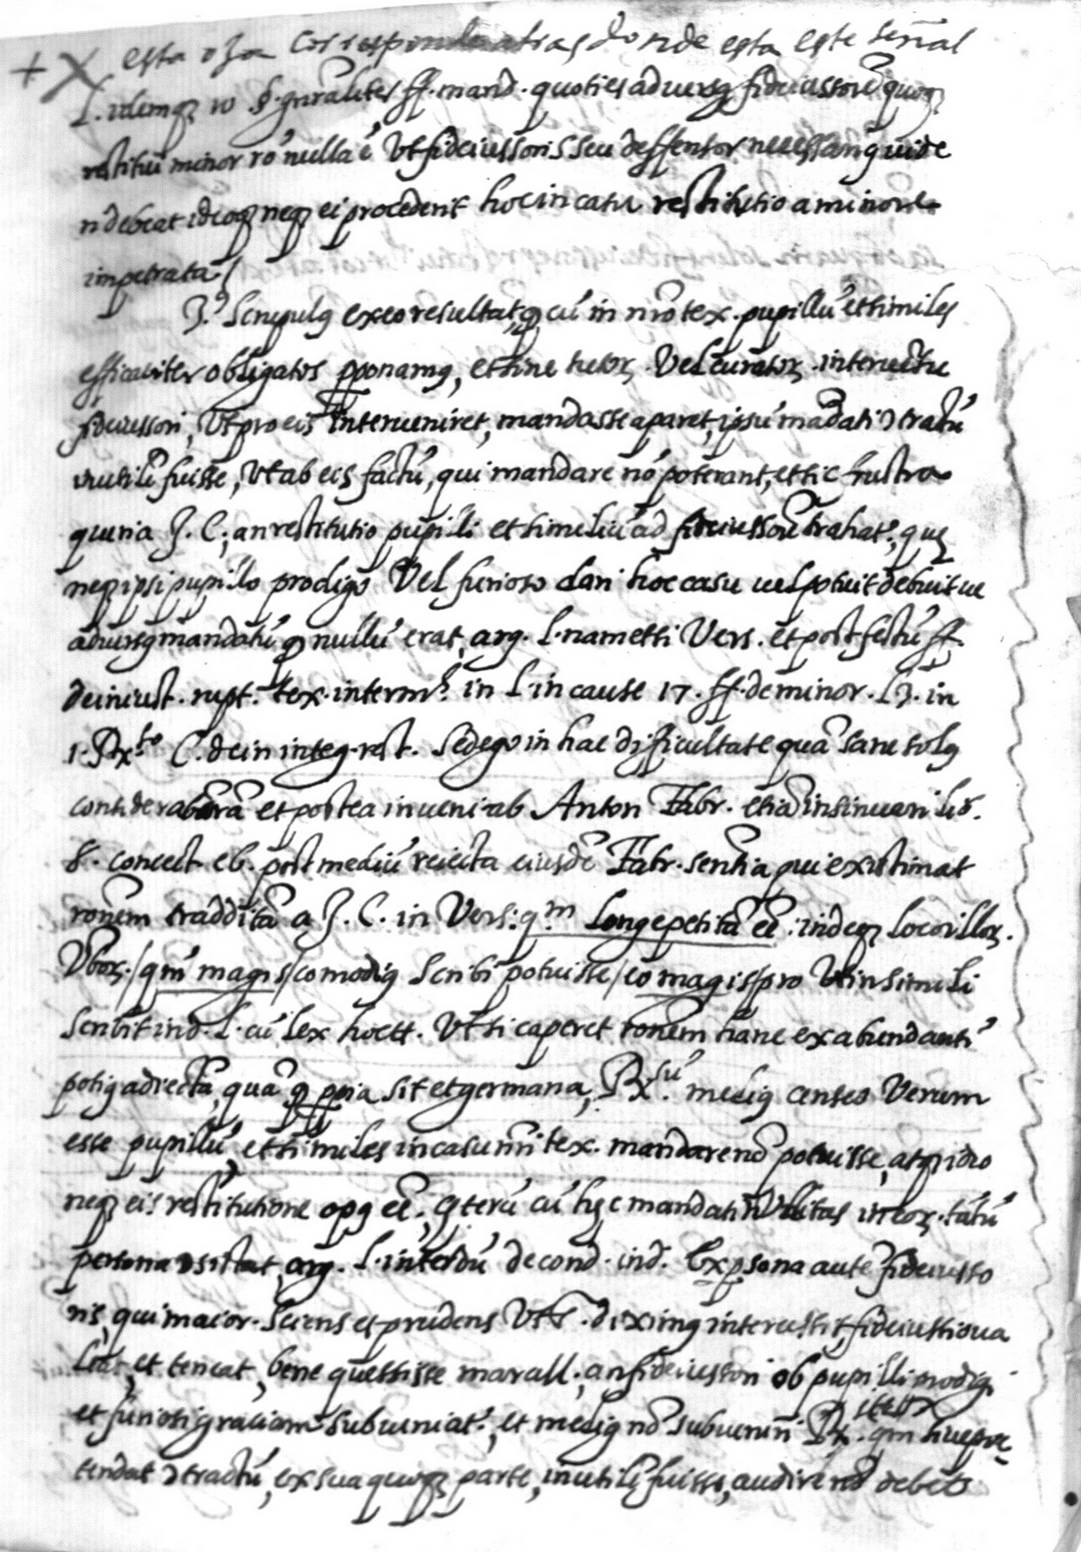 + X esta oJa Correspon atras donde esta este señal
L. idemqꝫ 10 §. gn̄raliter ff. mand. quoties adversꝰ fideiussorē quoqꝫ
restitui minor rō nulla ē Vt fideiussoris seu deffensor necessāquide
n debeat ideoqꝫ neqꝫ ei procederit hoc in casu restitutio a minore
impetrata /
3.º Scrupulꝰ ex eo resultat, qꝫ cū in nrō tex. pupillū et similes
efficaciter obligatos pponamꝰ, et sine tutorꝫ Vel curatorꝫ interventu
fideiussori, Vt pro eis interueniret, mandasse aparet, ipsū mādati ɔtratū
inutilē fuisse, Vt ab eis factū, qui mandare nō poterant, et sic frustra
queria J. C., an restitutio pupilli et similiū ad fideiussorē trahatʳ, quę
neqꝫ ipsi pupillo prodigo Vel furioso dari hoc casu uel potuit debuit ue
adversꝰ mandatū qꝫ nullū erat, arg. L. nam etsi Vers. et post festū ff.
de iniust. rupt. tex. in term.ˢ in L. in cause 17. ff. de minor. L 3. in
1. Rx.ᵗᵉ C. de in integ. rest. Sed ego in hac difficultate quā sane solꝰ
considerabārā et postea inveni ab Anton Fabr. etiā insinuari lib.
8. coniect c 6. post mediū reiecta eiusdē Fabr. sentīa qui existimat
ronem traddītā a J. C. in Vers: qᵐ longe petitā eē: indeqꝫ loco illorꝫ.
Vborꝫ. /qm̄ magis/ comodiꝰ scribi potuisse /eo magis/ pro Vt in simili
scribit in d. L. cū lex hoc tt. Vt si caperet ronem hanc ex abundanti
potiꝰ adiectā, quā qꝫ ppia sit et germana, Rx.ˢᵘ. meliꝰ censeo Verum
esse pupillū, et similes in casu nr̄i tex. mandare nō potuisse, atqꝫ ideo
neqꝫ eis restitutione opꝰ eē, Cęterū cū hęc mandati inVtilitas in eorꝫ. tātū
persona ɔsistat, arg. L. interdū de cond. ind. Ex psona autē fideiusso
ris, qui maior. sciens et prudens Vt S. diximꝰ intercessit fideiussio va
leat, et teneat, bene quessisse marcell. an fideiussori ob pupilli prodigi
et furiosi graciam subueniatʳ, et meliꝰ nō subueniri Rx. qm̄ hic pre
tendat ɔtractū, ex sua quoqꝫ parte, inutilē fuisse, audire nō debet